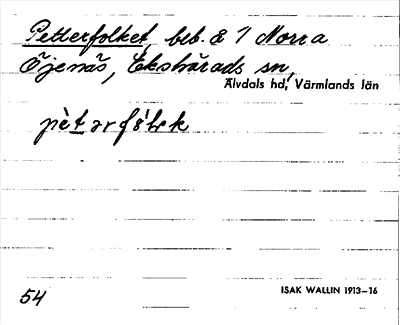 Petterfolket, beb. å 1 Norra
Öjenäs, Ekshärads sn,
Älvdals hd, Värmlands län
pètərfôl̥k
54
ISAK WALLIN 1913–16